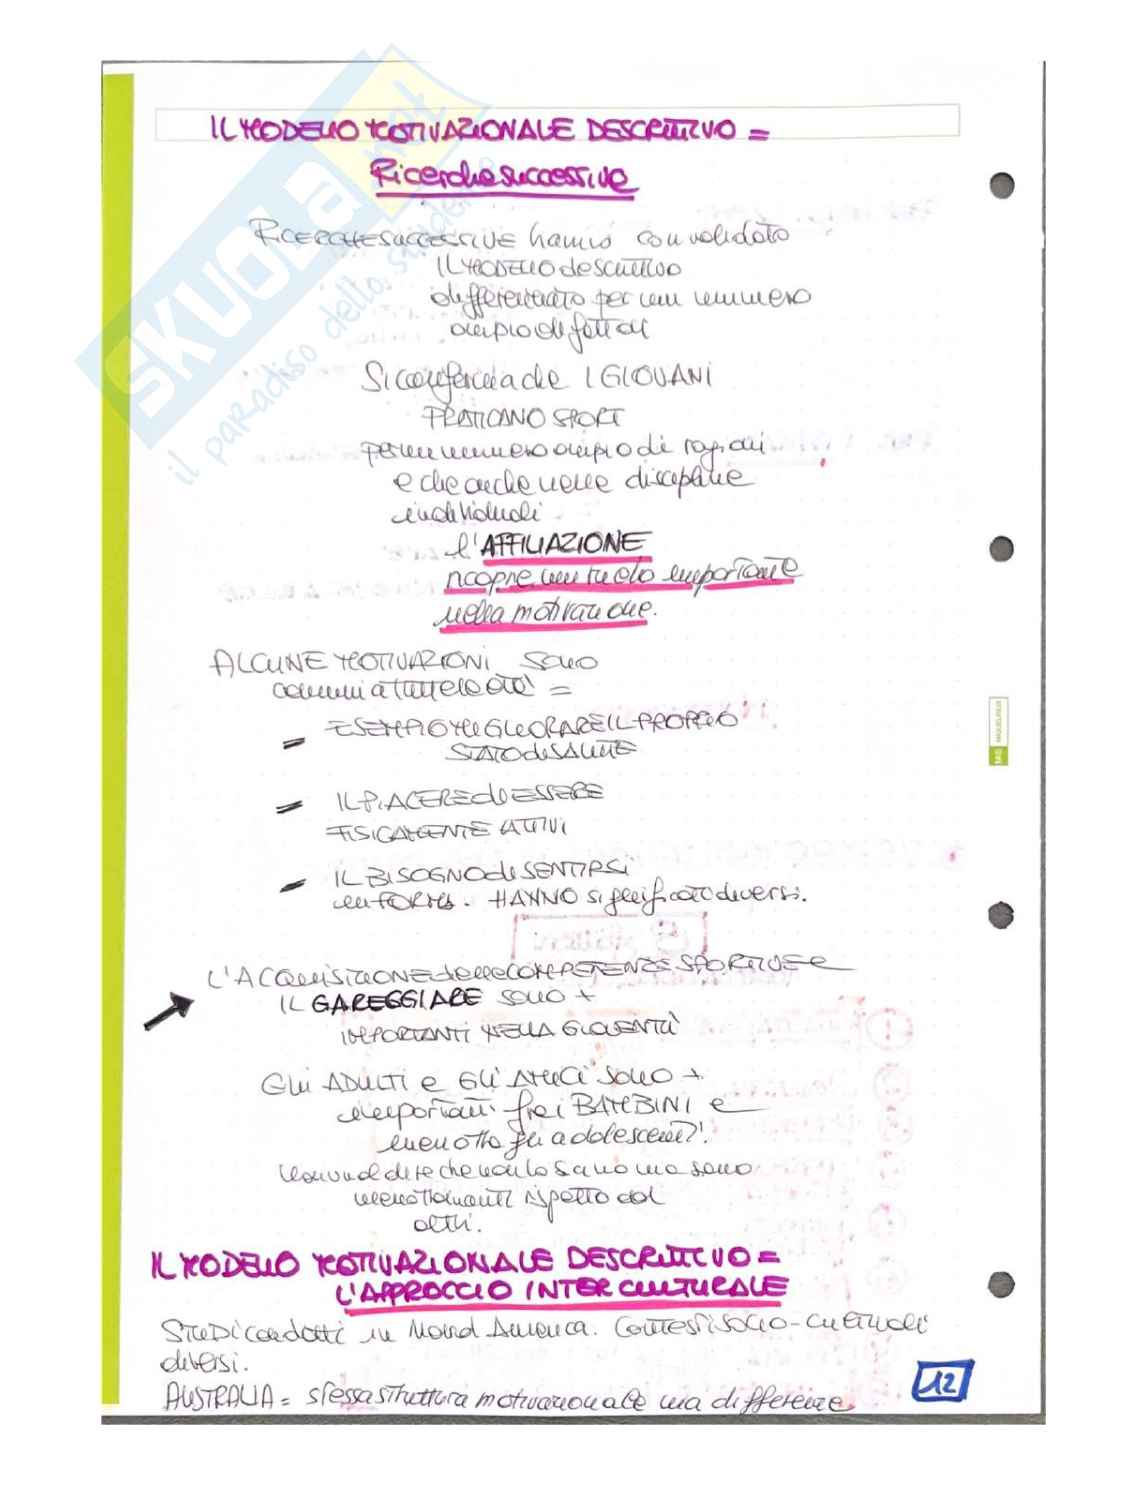 IL MODELLO MOTIVAZIONALE DESCRITTIVO =
Ricerche successive
RICERCHE SUCCESSIVE hanno convalidato
IL MODELLO descrittivo
differenziato per un numero
ampio di fattori
Si conferma che I GIOVANI
PRATICANO SPORT
per un numero ampio di ragioni
e che anche nelle discipline
individuali
l'AFFILIAZIONE
ricopre un ruolo importante
nella motivazione.
ALCUNE MOTIVAZIONI sono
comuni a tutte le età =
- ESEMPIO MIGLIORARE IL PROPRIO
STATO di SALUTE
- IL PIACERE di ESSERE
FISICAMENTE ATTIVI
- IL BISOGNO di SENTIRSI
in FORMA. HANNO significato diversi.
L'ACQUISIZIONE delle COMPETENZE SPORTIVE e
IL GAREGGIARE sono +
IMPORTANTI NELLA GIOVENTÙ
Gli ADULTI e GLI AMICI sono +
importanti fra i BAMBINI e
meno tra gli adolescenti.
che non lo sono ma sono
meno rilevanti rispetto ad
altri.
IL MODELLO MOTIVAZIONALE DESCRITTIVO =
L'APPROCCIO INTERCULTURALE
STUDI condotti in Nord America. Contesti socio-culturali
diversi.
AUSTRALIA = stessa struttura motivazionale ma differenze
12
SKUOLA.net
il paradiso dello studente